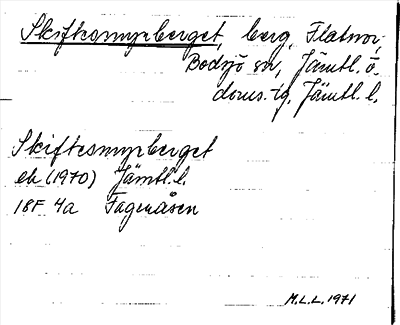 Skiftesmyrberget, berg, Flatnor,
Bodsjö sn, Jämtl. ö.
doms. tg, Jämtl. l.
Skiftesmyrberget
ek (1970) Jämtl. l.
18F 4a Fagmåsen
M.L.L. 1971